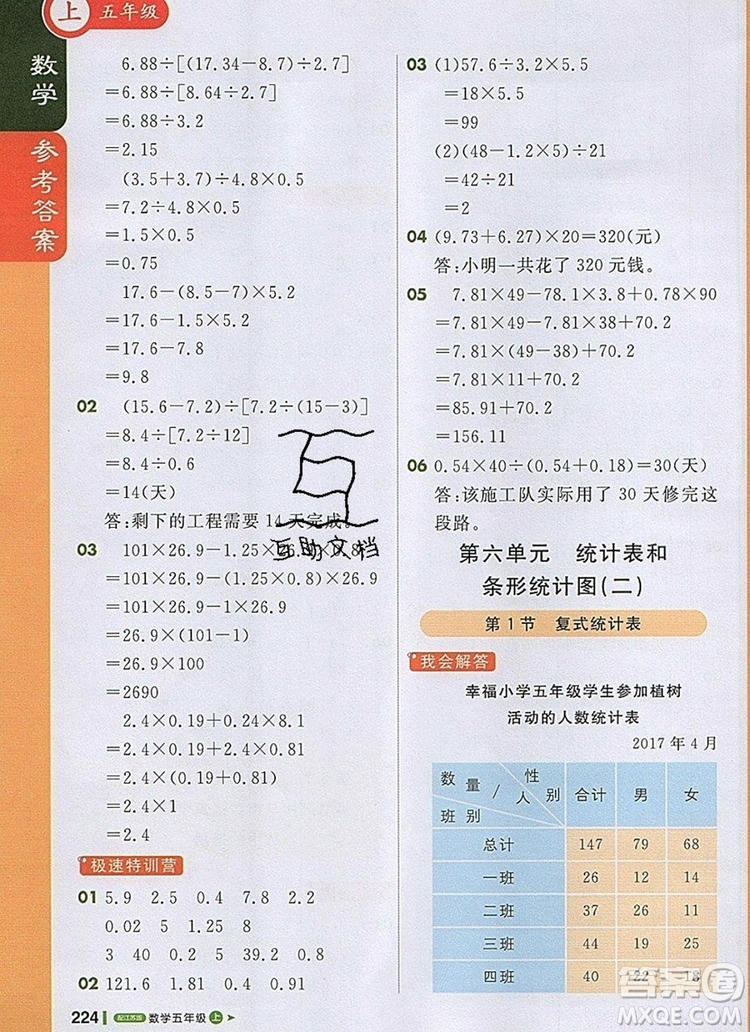 上 五年级
数学
参考答案
6.88÷[(17.34-8.7)÷2.7]
=6.88÷[8.64÷2.7]
=6.88÷3.2
=2.15
(3.5+3.7)÷4.8×0.5
=7.2÷4.8×0.5
=1.5×0.5
=0.75
17.6-(8.5-7)×5.2
=17.6-1.5×5.2
=17.6-7.8
=9.8
02 (15.6-7.2)÷[7.2÷(15-3)]
=8.4÷[7.2÷12]
=8.4÷0.6
=14(天)
答:剩下的工程需要14天完成。
03 101×26.9-1.25×26.9×0.8
=101×26.9-(1.25×0.8)×26.9
=101×26.9-1×26.9
=26.9×(101-1)
=26.9×100
=2690
2.4×0.19+0.24×8.1
=2.4×0.19+2.4×0.81
=2.4×(0.19+0.81)
=2.4×1
=2.4
极速特训营
01 5.9 2.5 0.4 7.8 2.2
0.02 5 1.25 8
3 40 0.2 5 39.2
02 121.6 1.81 0.4 9.8
224 配江苏版 数学五年级 上
03 (1)57.6÷3.2×5.5
=18×5.5
=99
(2)(48-1.2×5)÷21
=42÷21
=2
04 (9.73+6.27)×20=320(元)
答:小明一共花了320元钱。
05 7.81×49-78.1×3.8+0.78×90
=7.81×49-7.81×38+70.2
=7.81×(49-38)+70.2
=7.81×11+70.2
=85.91+70.2
=156.11
06 0.54×40÷(0.54+0.18)=30(天)
答:该施工队实际用了30天修完这
段路。
第六单元 统计表和
条形统计图(二)
第1节 复式统计表
我会解答
幸福小学五年级学生参加植树
活动的人数统计表
2017年4月
数量/人 性别 班别 合计 男 女
总计 147 79 68
一班 26 12 14
二班 37 26 11
三班 44 19 25
四班 40 22 18
互助文档
答案圈
MXQE.COM